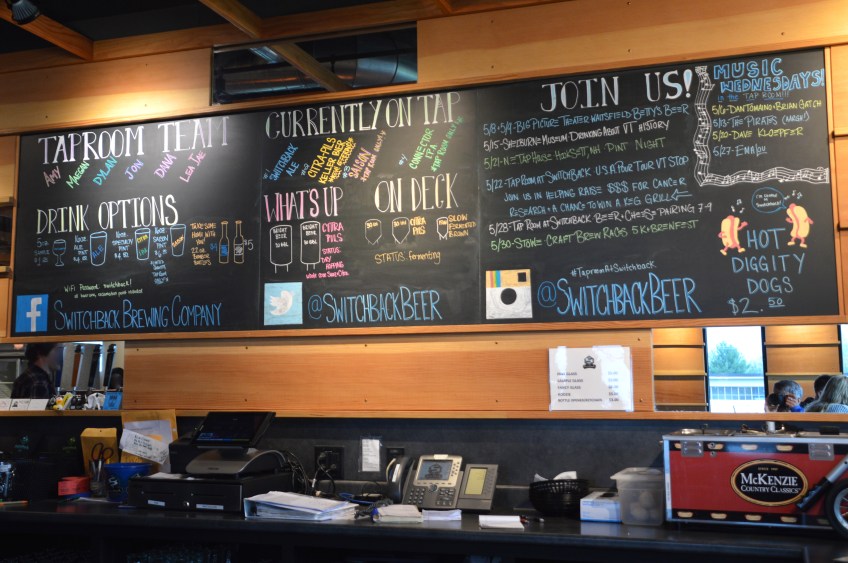 TAPROOM TEAM
AMY
MAEGAN
DYLAN
JON
DANA
LEA JAE
DRINK OPTIONS
WiFi Password: switchback1
f SWITCHBACK BREWING COMPANY
CURRENTLY ON TAP
SWITCHBACK
ALE
CITRA-PILS
KELLER BEER
SAISON
CONNECTOR
IPA
WHAT'S UP
CITRA
PILS
STATUS:
DRY
HOPPING
ON DECK
CITRA
PILS
SLOW
FERMENTED
BROWN
STATUS: fermenting
@SWITCHBACKBEER
JOIN US!
5/8+5/9-BIG PICTURE THEATER WAITSFIELD BETTY'S BEER
5/15-SHELBURNE MUSEUM DRINKING ABOUT VT HISTORY
5/21-NE TAP HOUSE-HOOKSETT, NH PINT NIGHT
5/22-TAP ROOM AT SWITCHBACK USA POUR TOUR VT STOP
JOIN US IN HELPING RAISE $$$ FOR CANCER
RESEARCH + A CHANCE TO WIN A KEG GRILL
5/28-TAP ROOM AT SWITCHBACK BEER + CHEESE PAIRING 7-9
5/30-STOWE-CRAFT BREW RACES 5K + BREWFEST
#TaproomAtSwitchback
@SWITCHBACKBEER
MUSIC
WEDNESDAYS!
IN THE TAP ROOM!!!
5/6-DAN TOMAINO + BRIAN HATCH
5/13-THE PIRATES
5/20-DAVE KLOEPFER
5/27-EMALOU
HOT
DIGGITY
DOGS
$2.50
MCKENZIE
COUNTRY CLASSICS